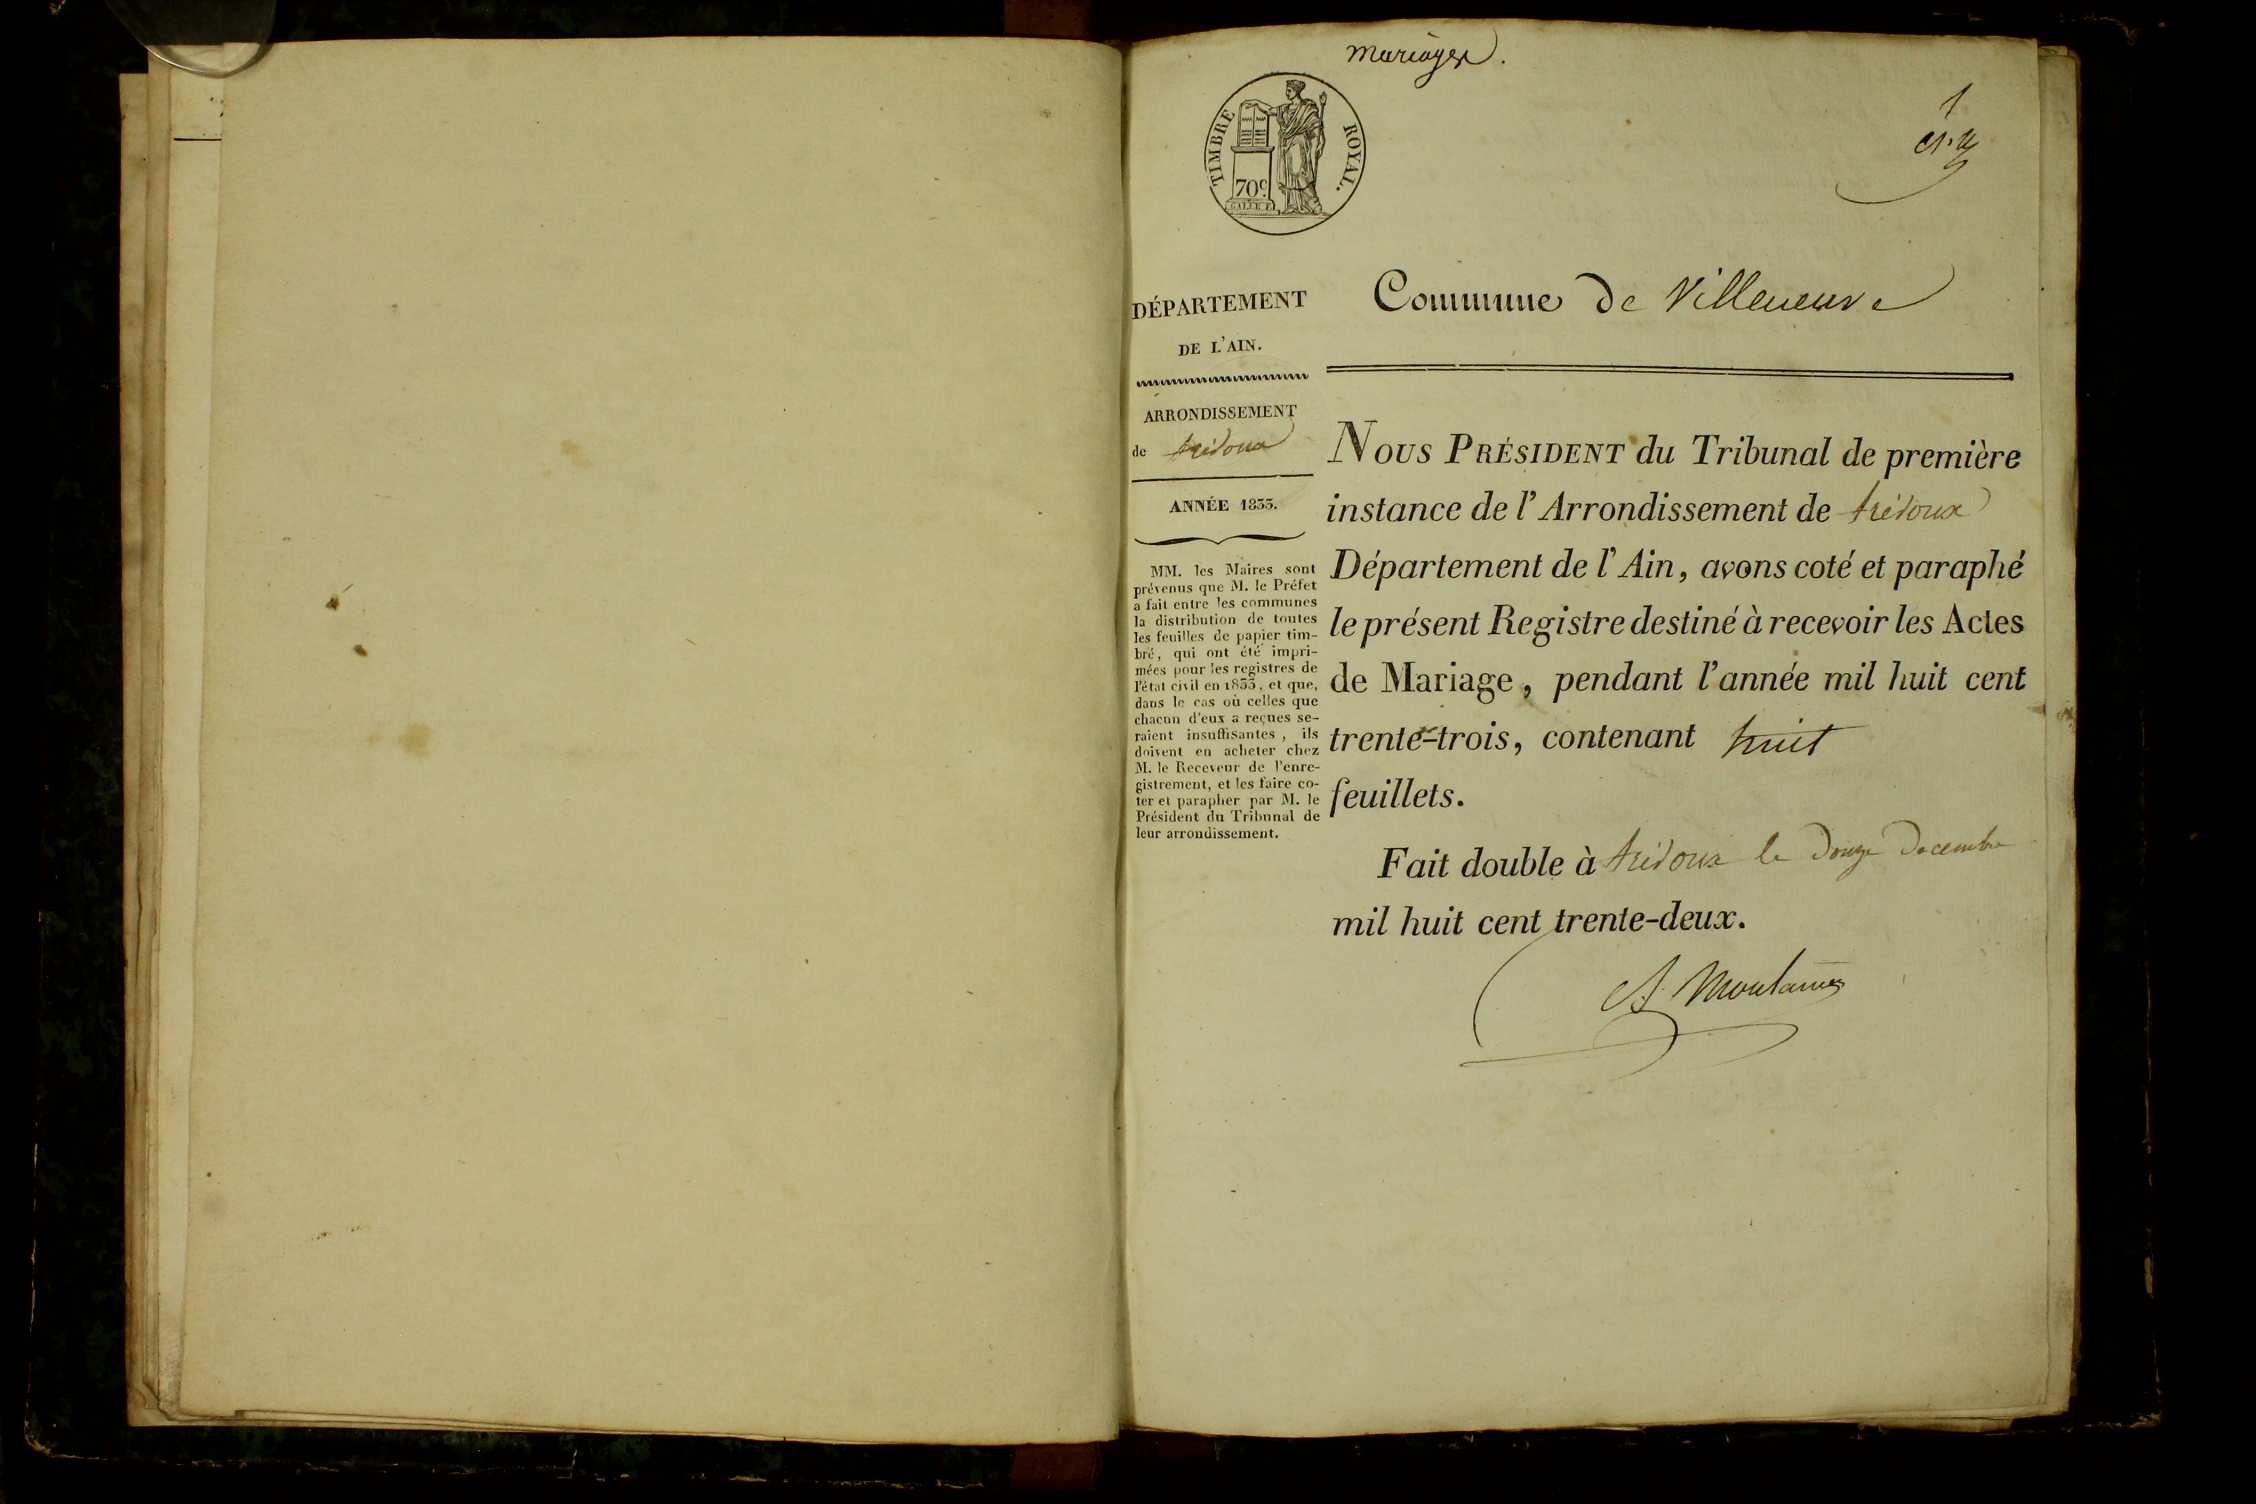 mariages.
TIMBRE ROYAL.
70c
1
DÉPARTEMENT
DE L'AIN.
ARRONDISSEMENT
de trévoux
ANNÉE 1833.
MM. les Maires sont
prévenus que M. le Préfet
a fait entre les communes
la distribution de toutes
les feuilles de papier tim-
bré, qui ont été impri-
mées pour les registres de
l'état civil en 1833, et que,
dans le cas où celles que
chacun d'eux a reçues se-
raient insuffisantes, ils
doivent en acheter chez
M. le Receveur de l'enre-
gistrement, et les faire co-
ter et parapher par M. le
Président du Tribunal de
leur arrondissement.
Commune de Villeneuve
NOUS PRÉSIDENT du Tribunal de première
instance de l'Arrondissement de trévoux
Département de l'Ain, avons coté et paraphé
le présent Registre destiné à recevoir les Actes
de Mariage, pendant l'année mil huit cent
trente-trois, contenant huit
feuillets.
Fait double à trévoux le douze décembre
mil huit cent trente-deux.